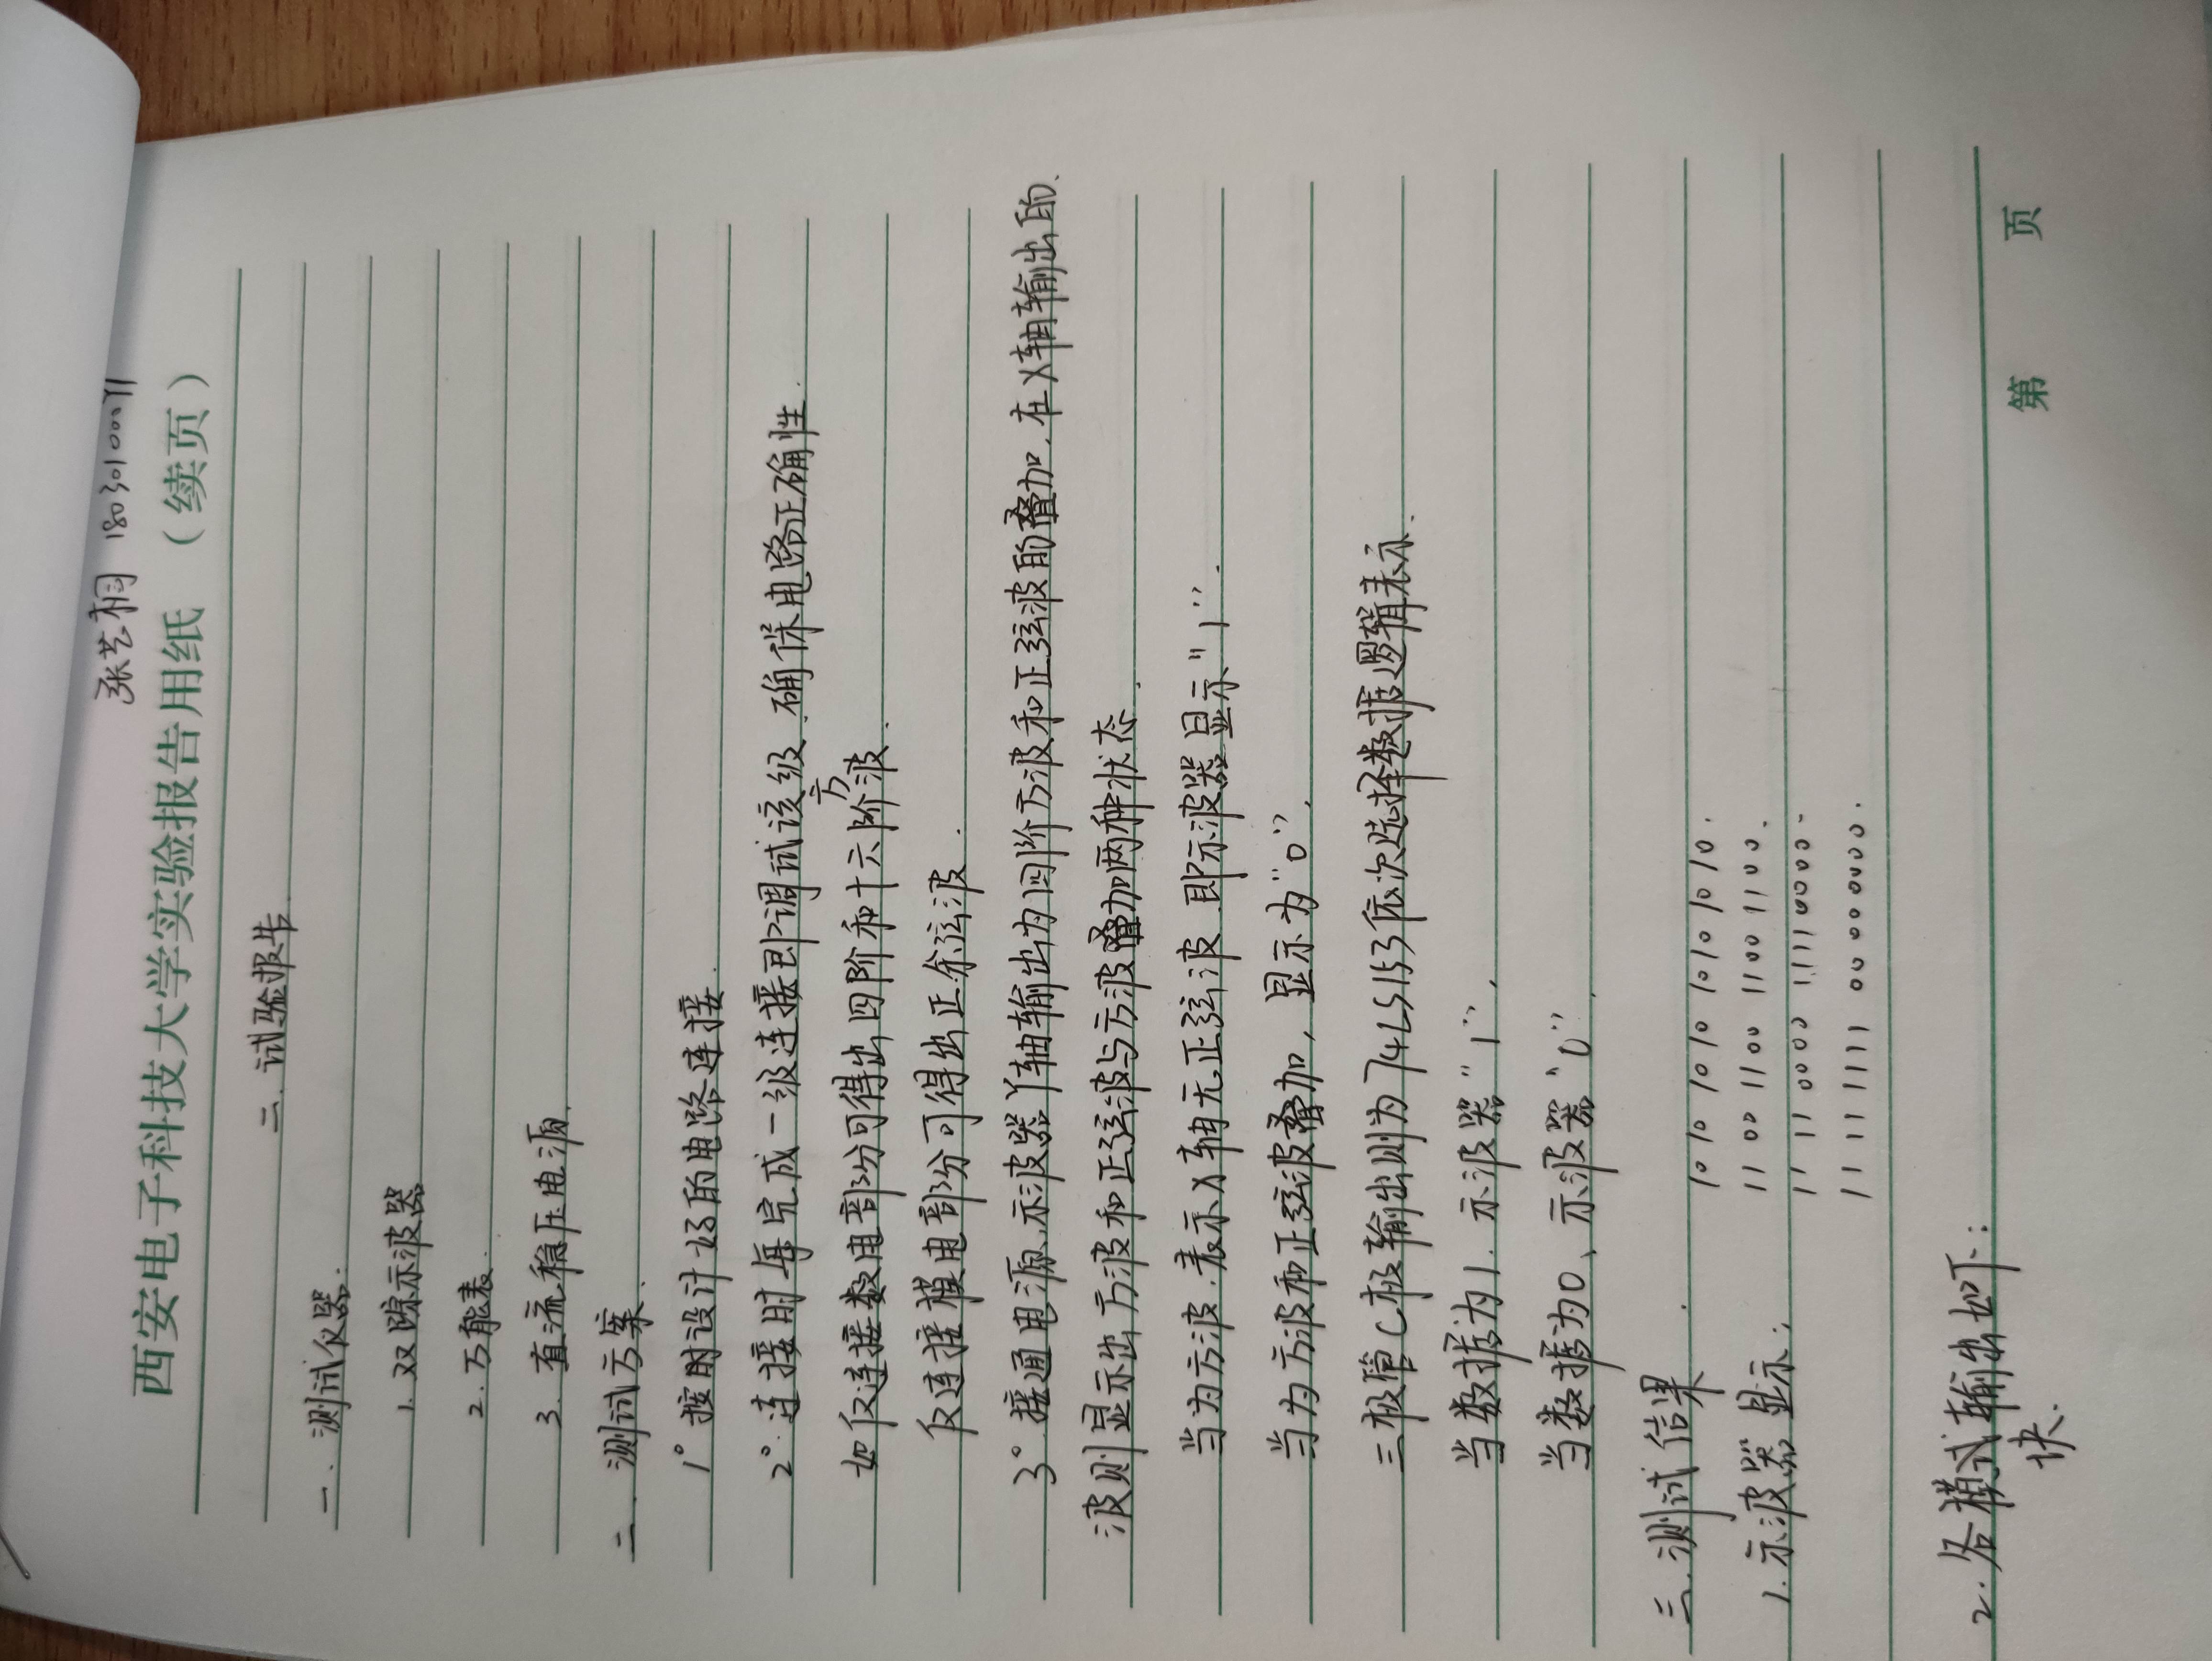 张艺桐 18030100071
西安电子科技大学实验报告用纸 （续页）
二.试验报告.
一.测试仪器.
1.双踪示波器
2.万能表.
3.直流稳压电源.
二.测试方案.
1°按时设计好的电路连接.
2°.连接时每完成一级连接即调试该级.确保电路正确性.
如仅连接数电部分可得出四阶和十六阶方波.
仅连接模电部分可得出正余弦波.
3°接通电源,示波器Y轴输出为四阶方波和正弦波的叠加.在X轴输出的.
波则显示出方波和正弦波与方波叠加两种状态.
当为方波.表示X轴无正弦波.即示波器显示"1".
当为方波和正弦波叠加,显示为"0".
三极管C极输出则为74LS153依次选择数据逻辑表示.
当数据为1.示波器"1".
当数据为0、示波器"0".
三.测试结果.
1010 1010 1010 1010.
1.示波器显示:
1100 1100 1100 1100.
1111 0000 1111 0000.
1111 1111 0000 0000.
2.各模式输出如下:
块.
第 页